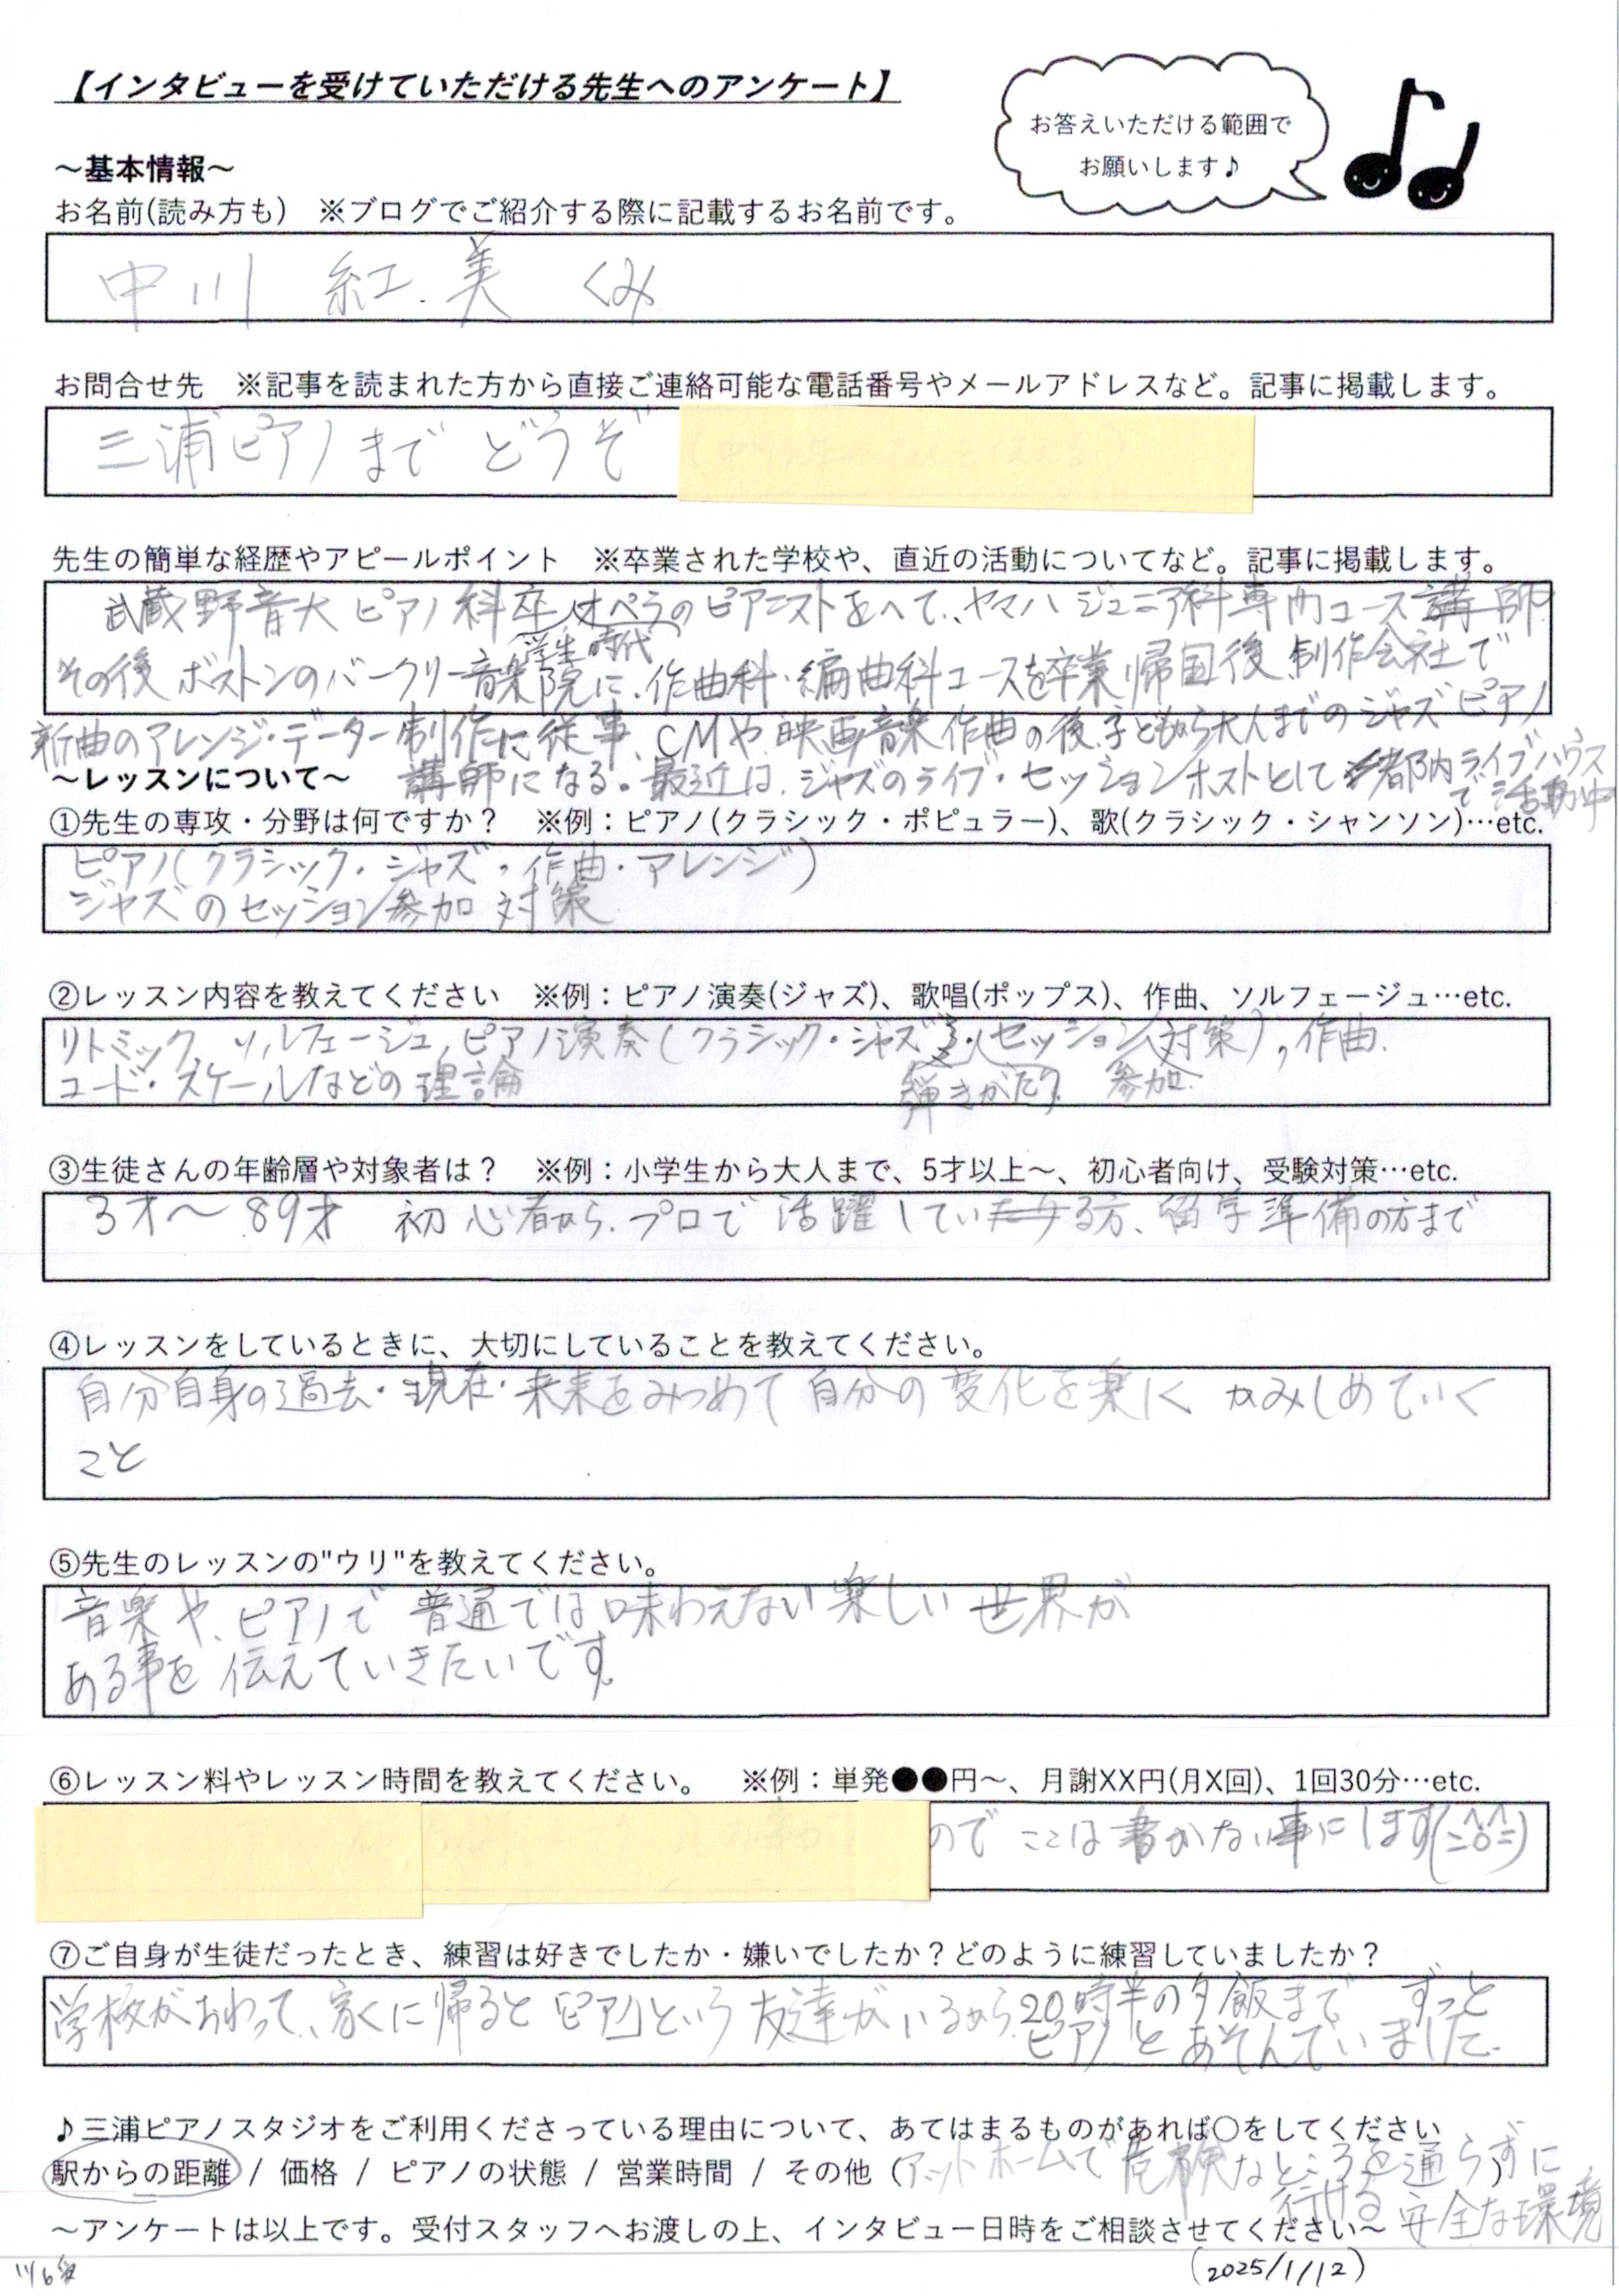 【インタビューを受けていただける先生へのアンケート】
お答えいただける範囲で
お願いします♪
～基本情報～
お名前(読み方も)　※ブログでご紹介する際に記載するお名前です。
中川 紅美 くみ
お問合せ先　※記事を読まれた方から直接ご連絡可能な電話番号やメールアドレスなど。記事に掲載します。
三浦ピアノまで どうぞ
先生の簡単な経歴やアピールポイント　※卒業された学校や、直近の活動についてなど。記事に掲載します。
武蔵野音大 ピアノ科卒 オペラのピアニストをへて、ヤマハ ジュニア科専門コース講師
学生時代
その後 ボストンのバークリー音楽院に、作曲科・編曲科コースを卒業 帰国後 制作会社で
新曲のアレンジ・データー制作に従事、CMや映画音楽作曲の後、子どもから大人までのジャズピアノ
講師になる。最近は、ジャズのライブ・セッションホストとして 都内ライブハウス
で活動中
～レッスンについて～
①先生の専攻・分野は何ですか？　※例：ピアノ(クラシック・ポピュラー)、歌(クラシック・シャンソン)…etc.
ピアノ(クラシック・ジャズ・作曲・アレンジ)
ジャズのセッション参加 対策
②レッスン内容を教えてください　※例：ピアノ演奏(ジャズ)、歌唱(ポップス)、作曲、ソルフェージュ…etc.
リトミック、ソルフェージュ、ピアノ演奏(クラシック・ジャズ・セッション対策)、作曲、
弾きがたり 参加
コード・スケールなどの理論
③生徒さんの年齢層や対象者は？　※例：小学生から大人まで、5才以上～、初心者向け、受験対策…etc.
3才～89才 初心者から、プロで活躍している方、留学準備の方まで
④レッスンをしているときに、大切にしていることを教えてください。
自分自身の過去・現在・未来をみつめて 自分の変化を楽しく かみしめていく
こと
⑤先生のレッスンの"ウリ"を教えてください。
音楽や、ピアノで 普通では味わえない楽しい世界が
ある事を伝えていきたいです。
⑥レッスン料やレッスン時間を教えてください。　※例：単発●●円～、月謝XX円(月X回)、1回30分…etc.
のでここは書かない事にします(=^o^=)
⑦ご自身が生徒だったとき、練習は好きでしたか・嫌いでしたか？どのように練習していましたか？
学校がおわって、家に帰ると「ピアノ」という友達がいるから 20時半の夕飯まで ずっと
ピアノとあそんでいました。
♪三浦ピアノスタジオをご利用くださっている理由について、あてはまるものがあれば○をしてください
駅からの距離 / 価格 / ピアノの状態 / 営業時間 / その他（アットホームで危険なところを通らずに
行ける 安全な環境）
～アンケートは以上です。受付スタッフへお渡しの上、インタビュー日時をご相談させてください～
(2025/1/12)